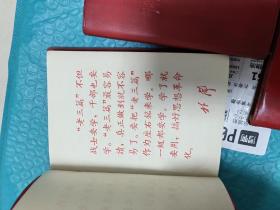 “老三篇”,不但
战士要学,干部也要
学。“老三篇”最容易
读,真正做到就不容
易了。要把“老三篇”
作为座右铭来学。哪
一级都要学。学了就
要用,搞好思想革命
化。
林彪